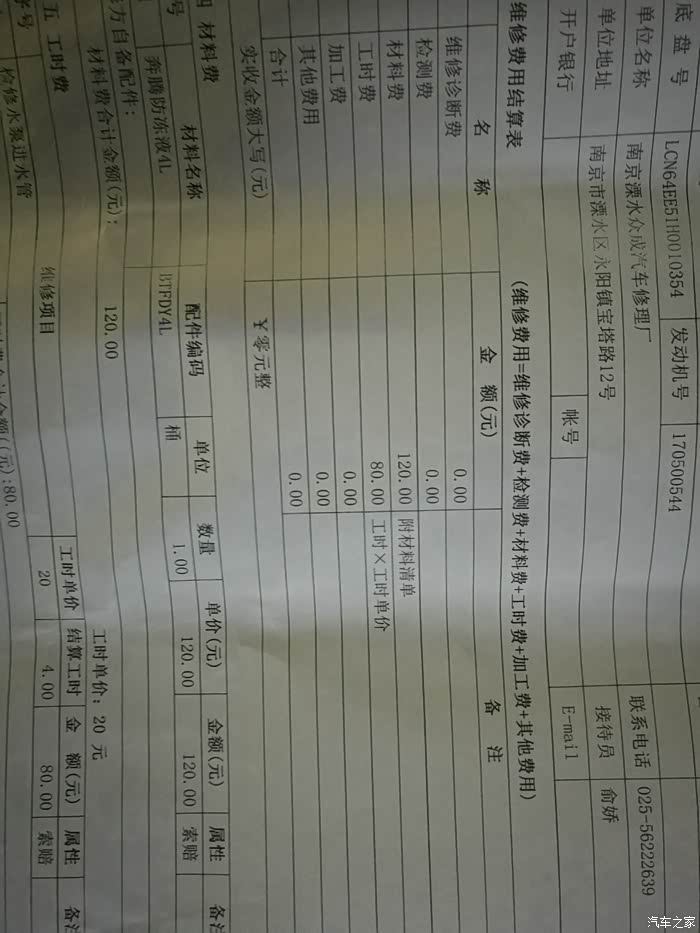 底盘号 LCN64EE51H0010354 发动机号 170500544
单位名称 南京溧水众成汽车修理厂 联系电话 025-56222639
单位地址 南京市溧水区永阳镇宝塔路12号 接待员 俞娇
开户银行 帐号 E-mail
维修费用结算表 (维修费用=维修诊断费+检测费+材料费+工时费+加工费+其他费用)
名 称 金 额(元) 备 注
维修诊断费 0.00
检测费 0.00
材料费 120.00 附材料清单
工时费 80.00 工时×工时单价
加工费 0.00
其他费用 0.00
合计 0.00
实收金额大写(元) ¥零元整
四 材料费
号 材料名称 配件编码 单位 数量 单价(元) 金额(元) 属性 备注
奔腾防冻液4L BTFDY4L 桶 1.00 120.00 120.00 索赔
方自备配件:
材料费合计金额(元): 120.00
五 工时费 工时单价: 20 元
序号 维修项目 工时单价 结算工时 金 额(元) 属性 备注
检修水泵进水管 20 4.00 80.00 索赔
金额(元):80.00
汽车之家